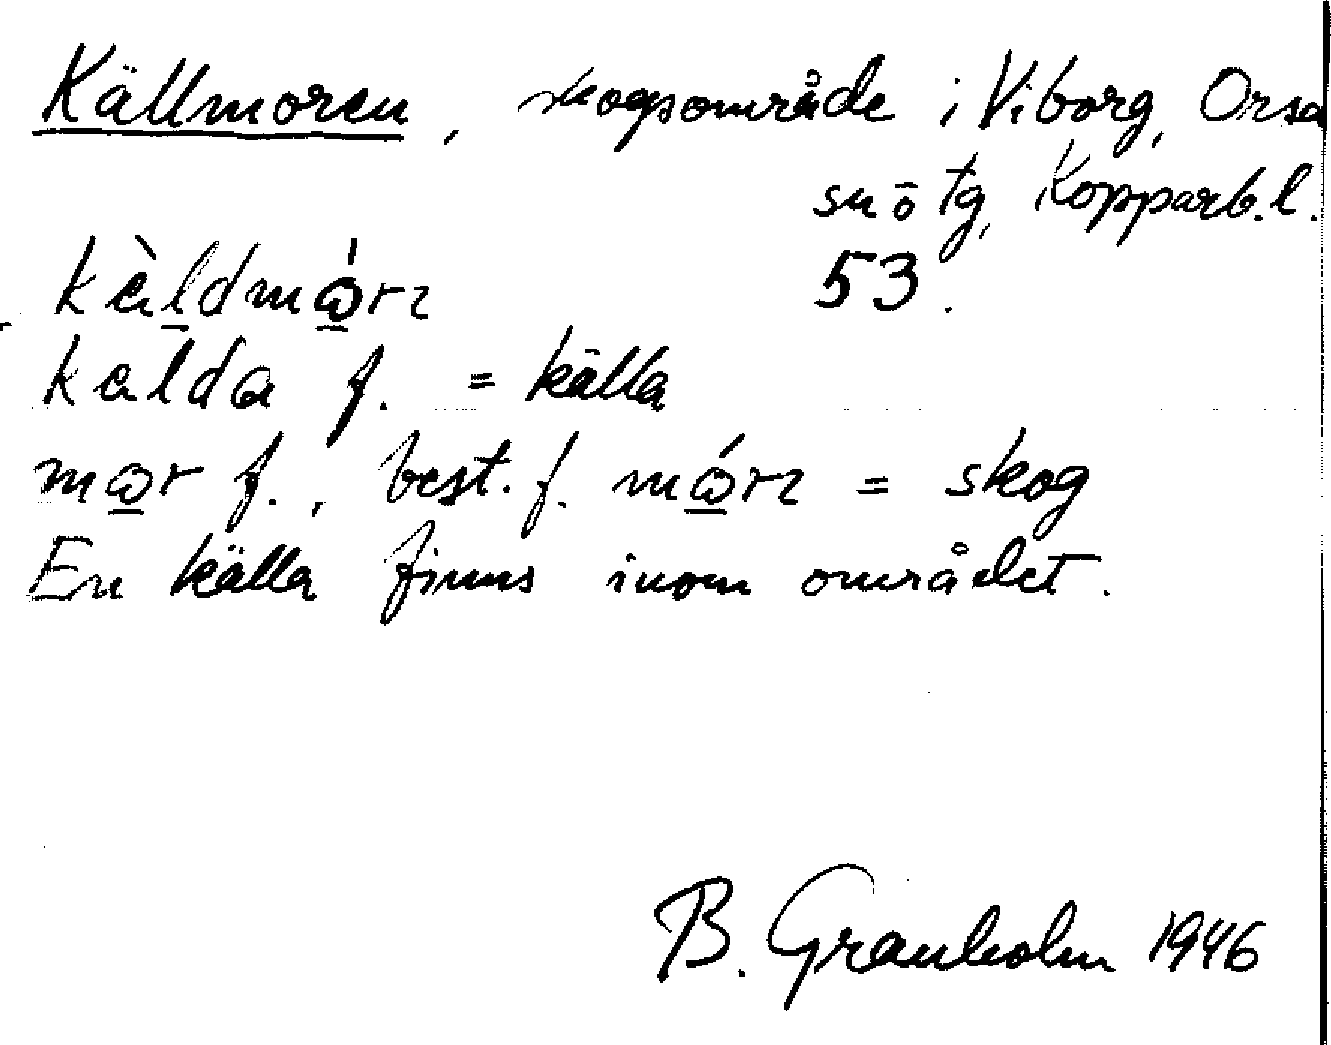 Källmoren, skogsområde i Viborg, Orsa
sn ō tg, Kopparb.l.
kàldmórɿ 53.
kalda f. = källa
mor f., best. f. mórɿ = skog
En källa finns inom området.
B. Granholm 1946